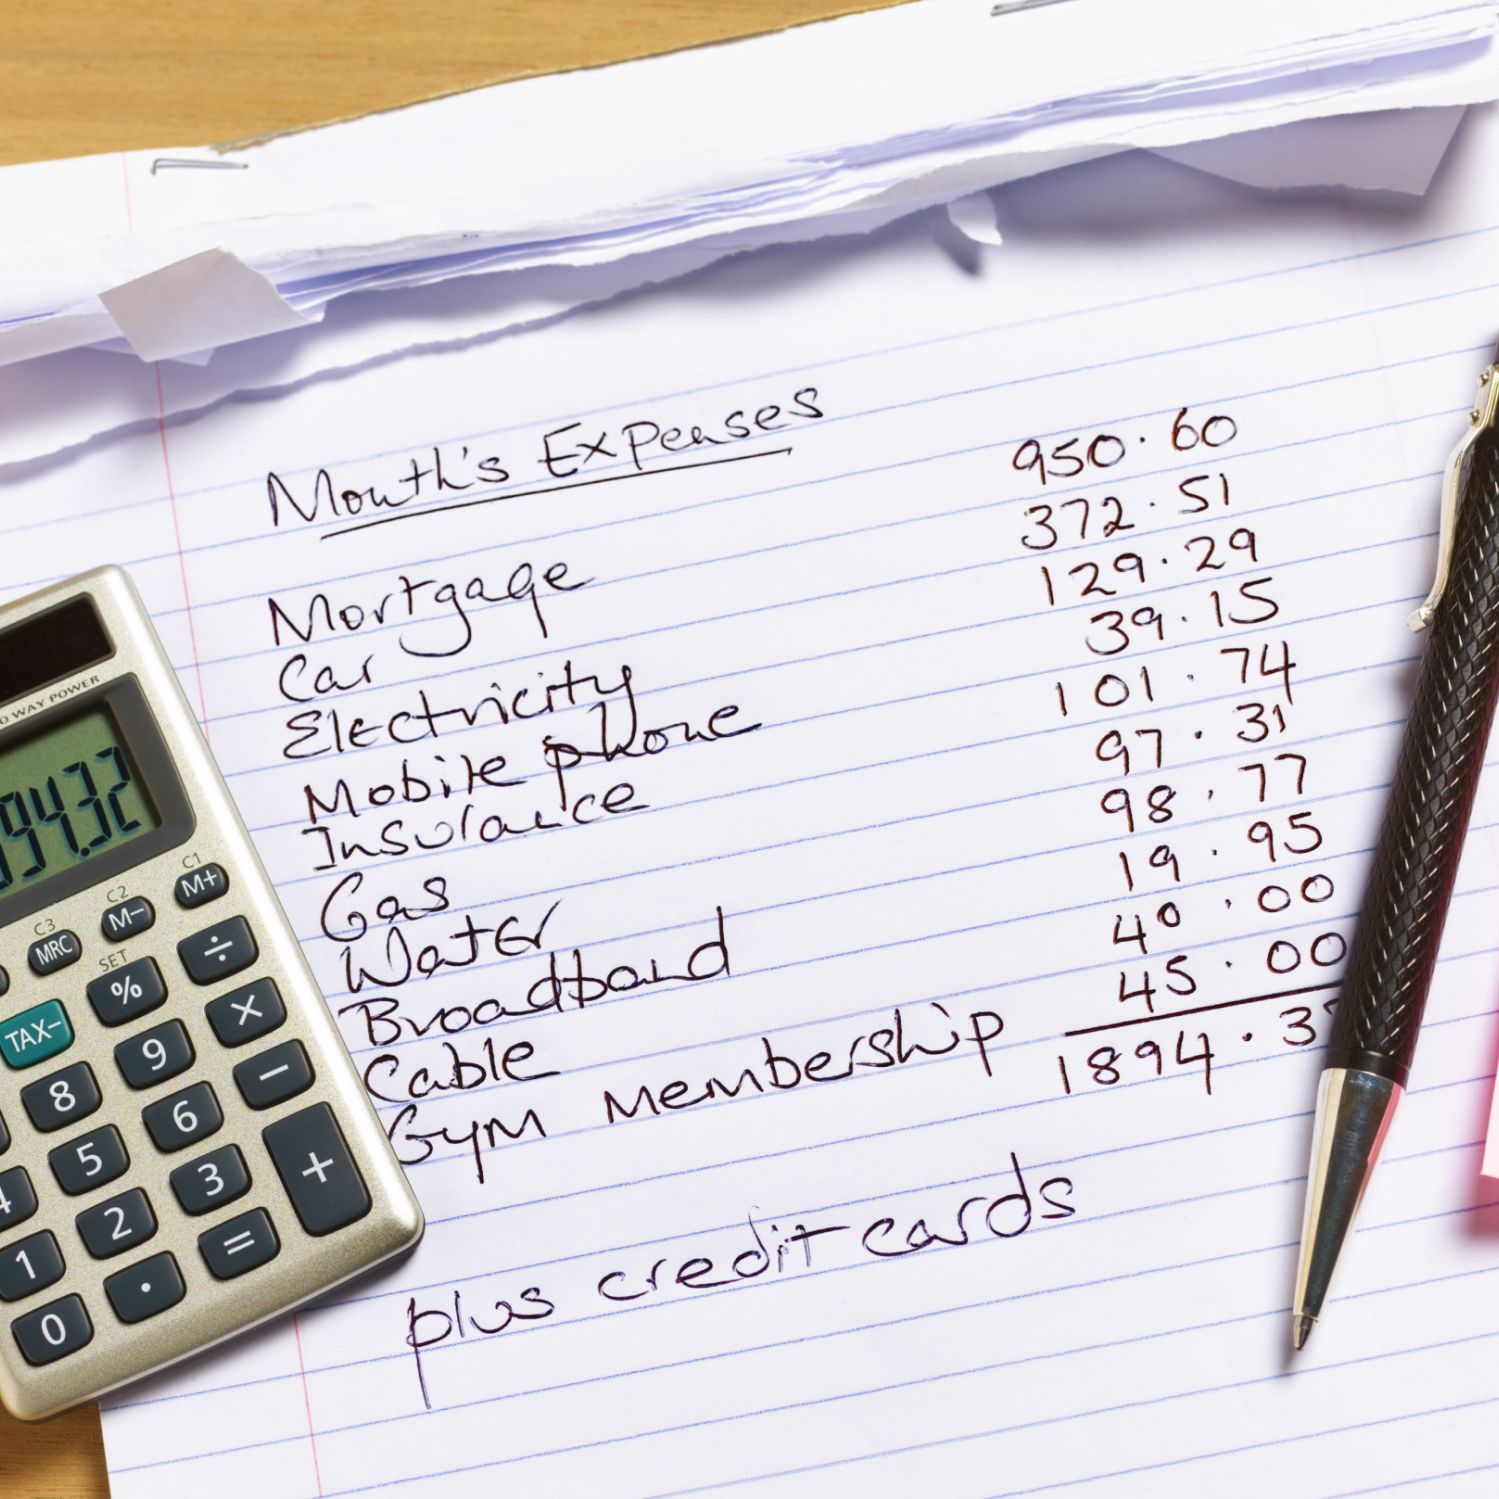 Month's Expenses
Mortgage 950.60
Car 372.51
Electricity 129.29
Mobile phone 39.15
Insurance 101.74
Gas 97.31
Water 98.77
Broadband 19.95
Cable 40.00
Gym Membership 45.00
1894.3
plus credit cards
WAY POWER
94.32
C3 C2 C1
MRC M− M+
SET
TAX− % ÷
8 9 ×
5 6 −
4
2 3 +
1
0 . =